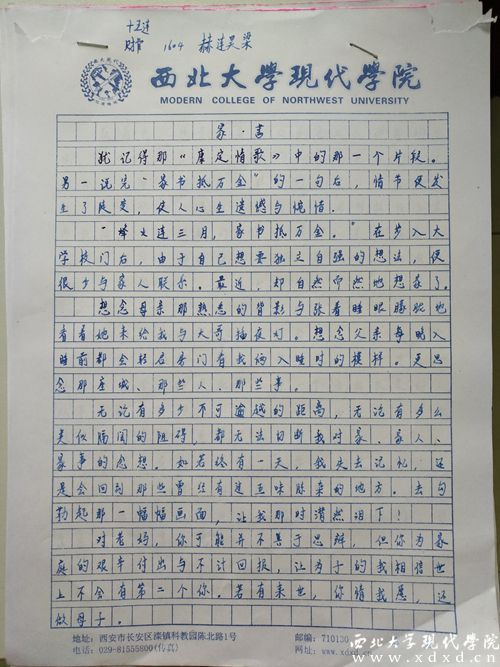 十五连
财管 1604 赫连昊梁
西北大學現代學院
MODERN COLLEGE OF NORTHWEST UNIVERSITY
家·书
犹记得那《康定情歌》中的那一个片段。
另一说完“家书抵万金”的一句后，情节便发
生了陡变，使人心生遗憾与惋惜。
“烽火连三月，家书抵万金。”在步入大
学校门后，由于自己想要独立自强的想法，便
很少与家人联系。最近，却自然而然地想家了。
想念母亲那熟悉的背影与张着睡眼朦胧地
看着她来给我与大哥插夜灯。想念父亲每晚入
睡前都会轻启房门看我俩入睡时的模样。更思
念那座城、那些人、那些事。
无论有多少不可逾越的距离，无论有多么
类似隔阂的阻碍，都无法切断我对家、家人、
家事的念想。如若终有一天，我失去记忆，还
是会回到那些曾经有过五味陈杂的地方。去勾
勒起那一幅幅画面，让我那时潸然泪下！
对老妈，你可能并不善于思辨，但你为家
庭的艰辛付出与不计回报，让为子的我相信世
上不会有第二个你。若有来世，你情我愿，还
做母子。
地址：西安市长安区滦镇科教园陈北路1号
邮编：710130
电话：029-81555800(传真)
网址：www.xdxd.cn
西北大学现代学院
www.xdxd.cn